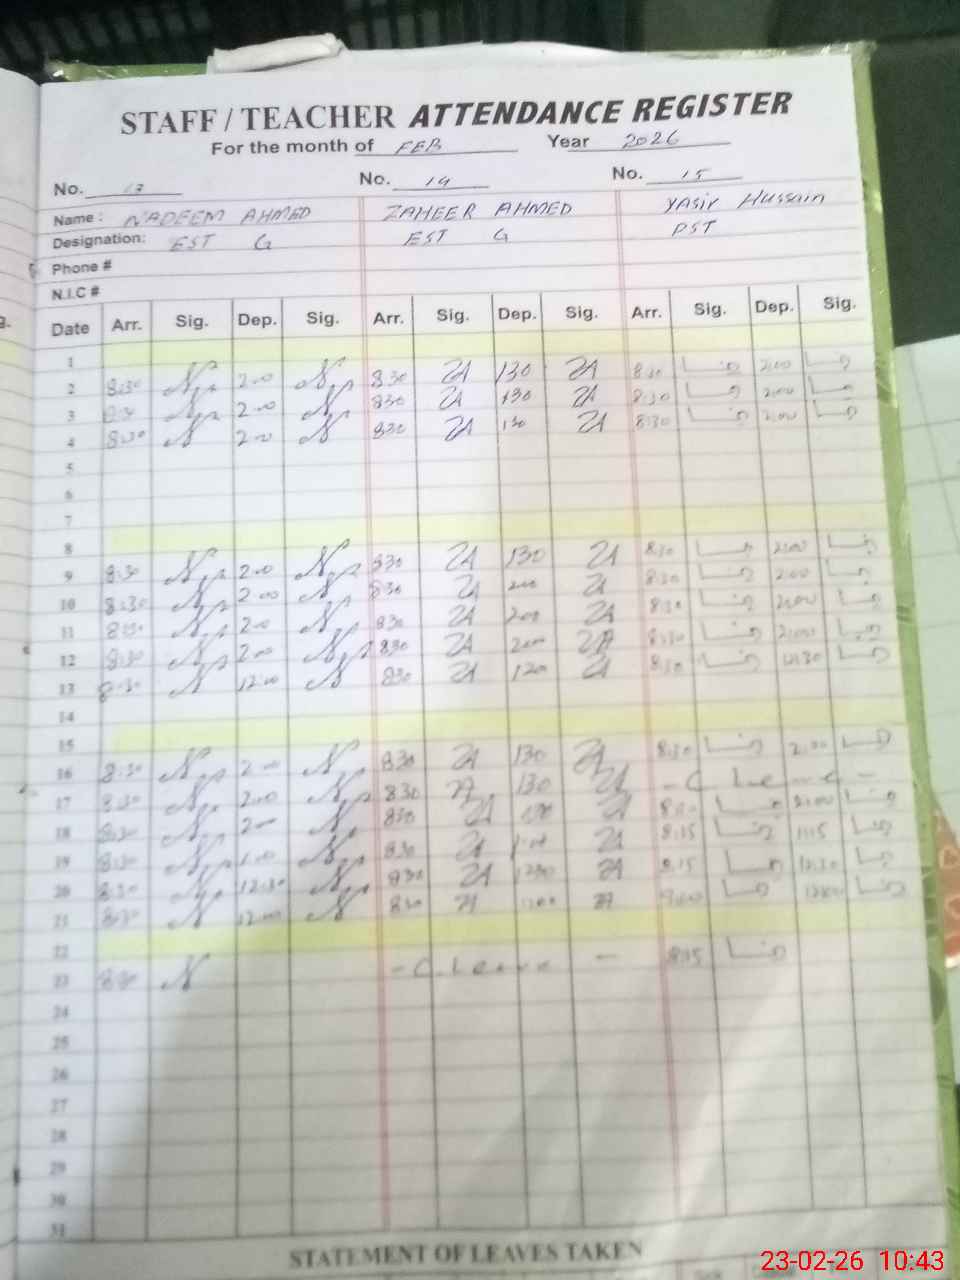 STAFF / TEACHER ATTENDANCE REGISTER
For the month of FEB Year 2026
No. 13 No. 14 No. 15
Name : NADEEM AHMED ZAHEER AHMED YASIR Hussain
Designation: EST G EST G PST
Phone #
N.I.C #
Date Arr. Sig. Dep. Sig. Arr. Sig. Dep. Sig. Arr. Sig. Dep. Sig.
1
2 8:30 2:00 830 ZA 130 ZA 8:30 2:00
3 8:30 2:00 830 ZA 130 ZA 8:30 2:00
4 8:30 2:00 830 ZA 130 ZA 8:30 2:00
5
6
7
8
9 8:30 2:00 830 ZA 130 ZA 8:30 2:00
10 8:30 2:00 830 ZA 200 ZA 8:30 2:00
11 8:30 2:00 830 ZA 200 ZA 8:30 2:00
12 8:30 2:00 830 ZA 200 ZA 8:30 2:00
13 8:30 12:00 830 ZA ZA 8:30 12:30
14
15
16 8:30 2:00 830 ZA 130 ZA 8:30 2:00
17 8:30 2:00 830 ZA 130 ZA - C Leave -
18 8:30 2:00 830 ZA ZA 2:00
19 8:30 1:00 830 ZA ZA 8:15 1:15
20 8:30 12:30 830 ZA 1230 ZA 8:15 12:30
21 8:30 12:00 830 ZA 1200 ZA 9:00 12:00
22
23 8:30 - C Leave - 8:15
24
25
26
27
28
29
30
31
STATEMENT OF LEAVES TAKEN
23-02-26 10:43